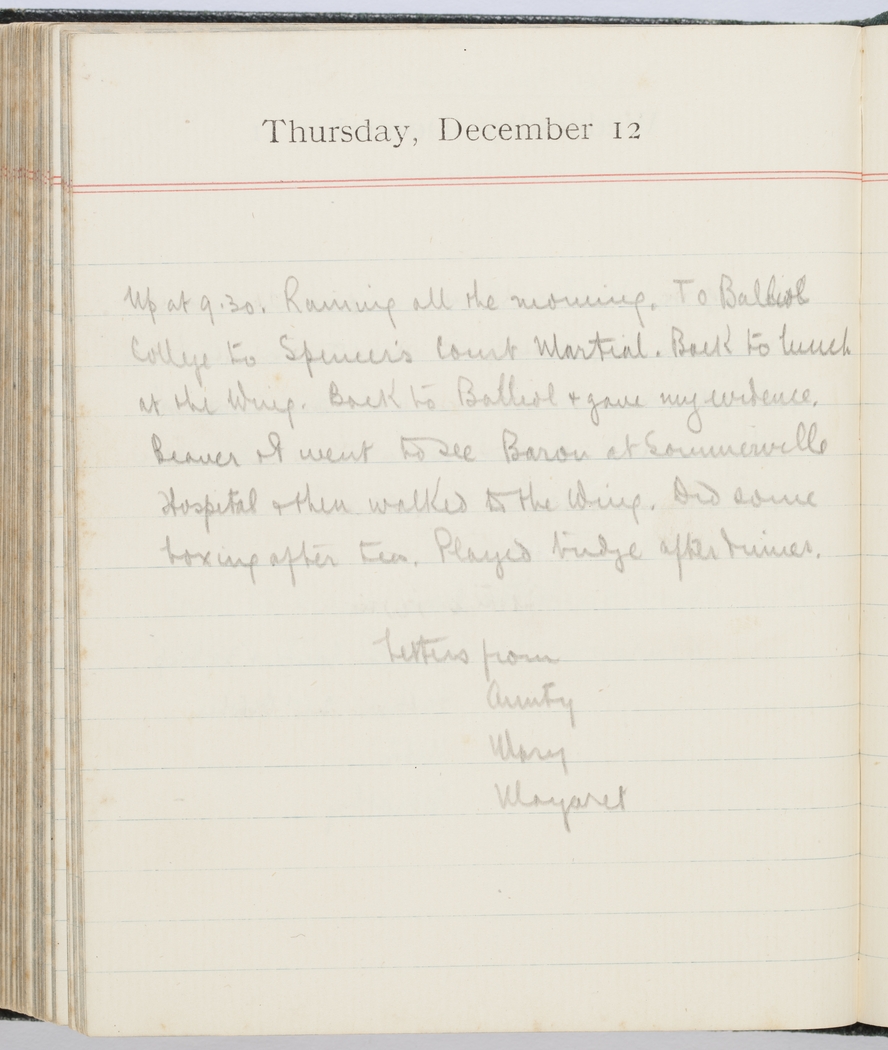 Thursday, December 12
Up at 9.30. Raining all the morning. To Balliol
College to Spencer's Court Martial. Back to lunch
at the Wing. Back to Balliol + gave my evidence.
Beaver & I went to see Baron at Sommerville
Hospital + then walked to the Wing. Did some
boxing after tea. Played bridge after dinner.
Letters from
Aunty
Mary
Margaret